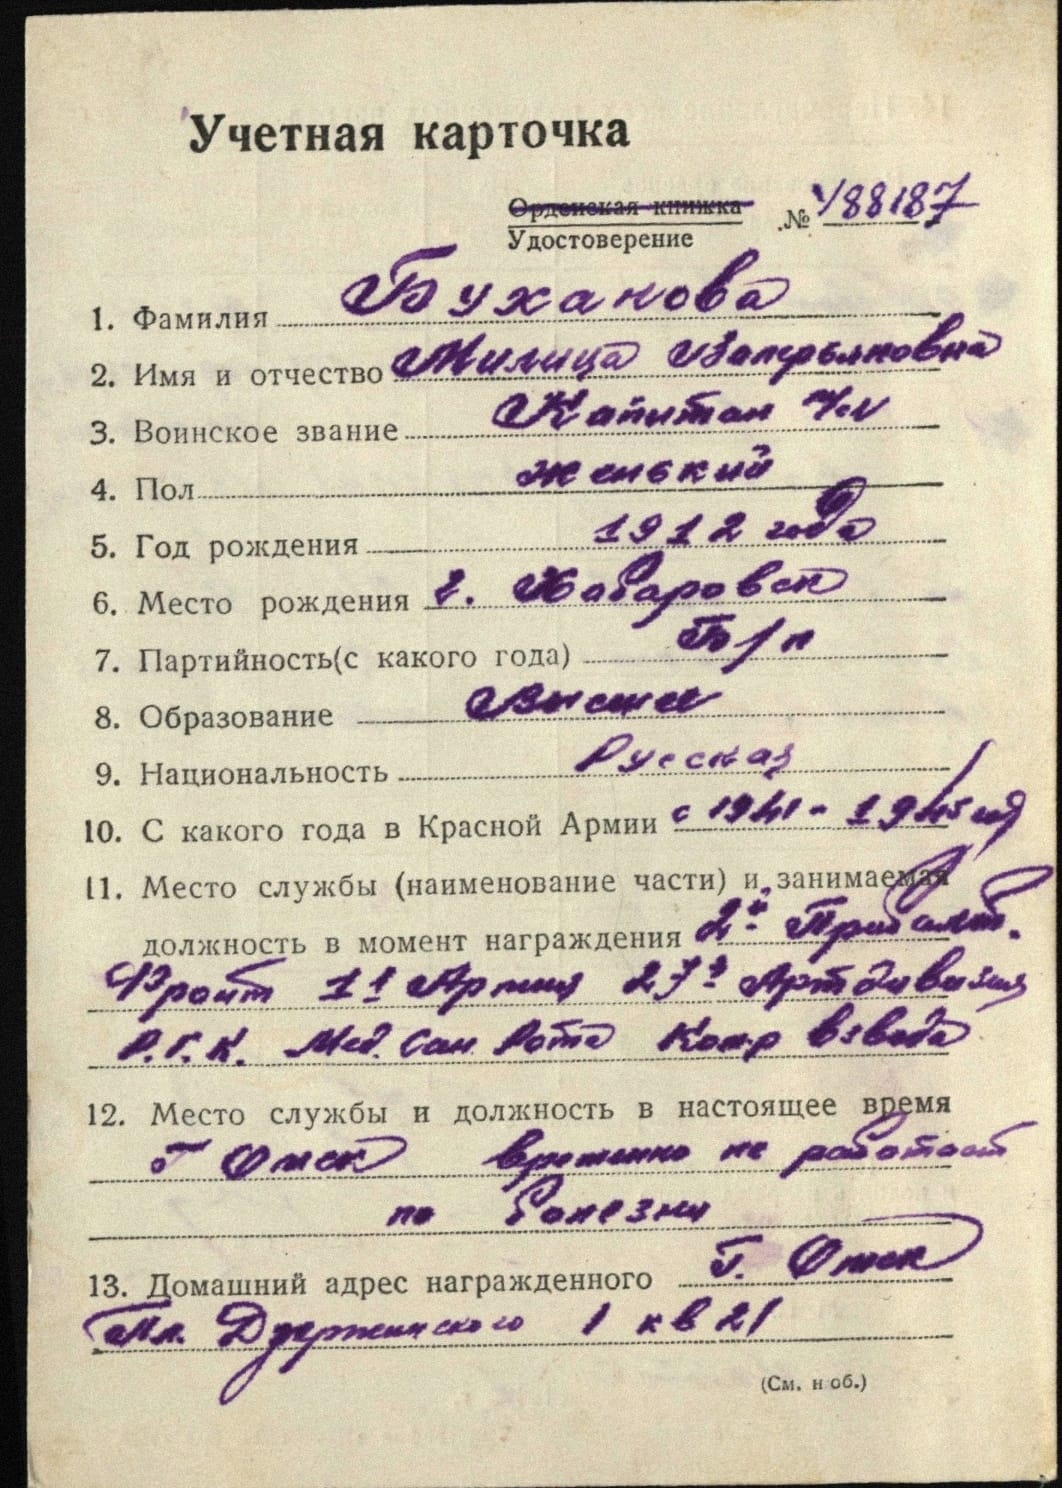 Учетная карточка
Орденская книжка №
Удостоверение У88187
1. Фамилия Буханова
2. Имя и отчество Милица Валерьяновна
3. Воинское звание Капитан м/с
4. Пол женский
5. Год рождения 1912 года
6. Место рождения г. Хабаровск
7. Партийность(с какого года) Б/п
8. Образование Высшее
9. Национальность Русская
10. С какого года в Красной Армии с 1941 - 1945
11. Место службы (наименование части) и занимаемая
должность в момент награждения 2й Прибалт.
Фронт 1я Армия 27я Артдивизия
Р.Г.К. Мед. Сан Рота Ком-р взвода
12. Место службы и должность в настоящее время
Г Омск временно не работает
по болезни
13. Домашний адрес награжденного Г. Омск
Пл. Дзержинского 1 кв 21
(См. н об.)